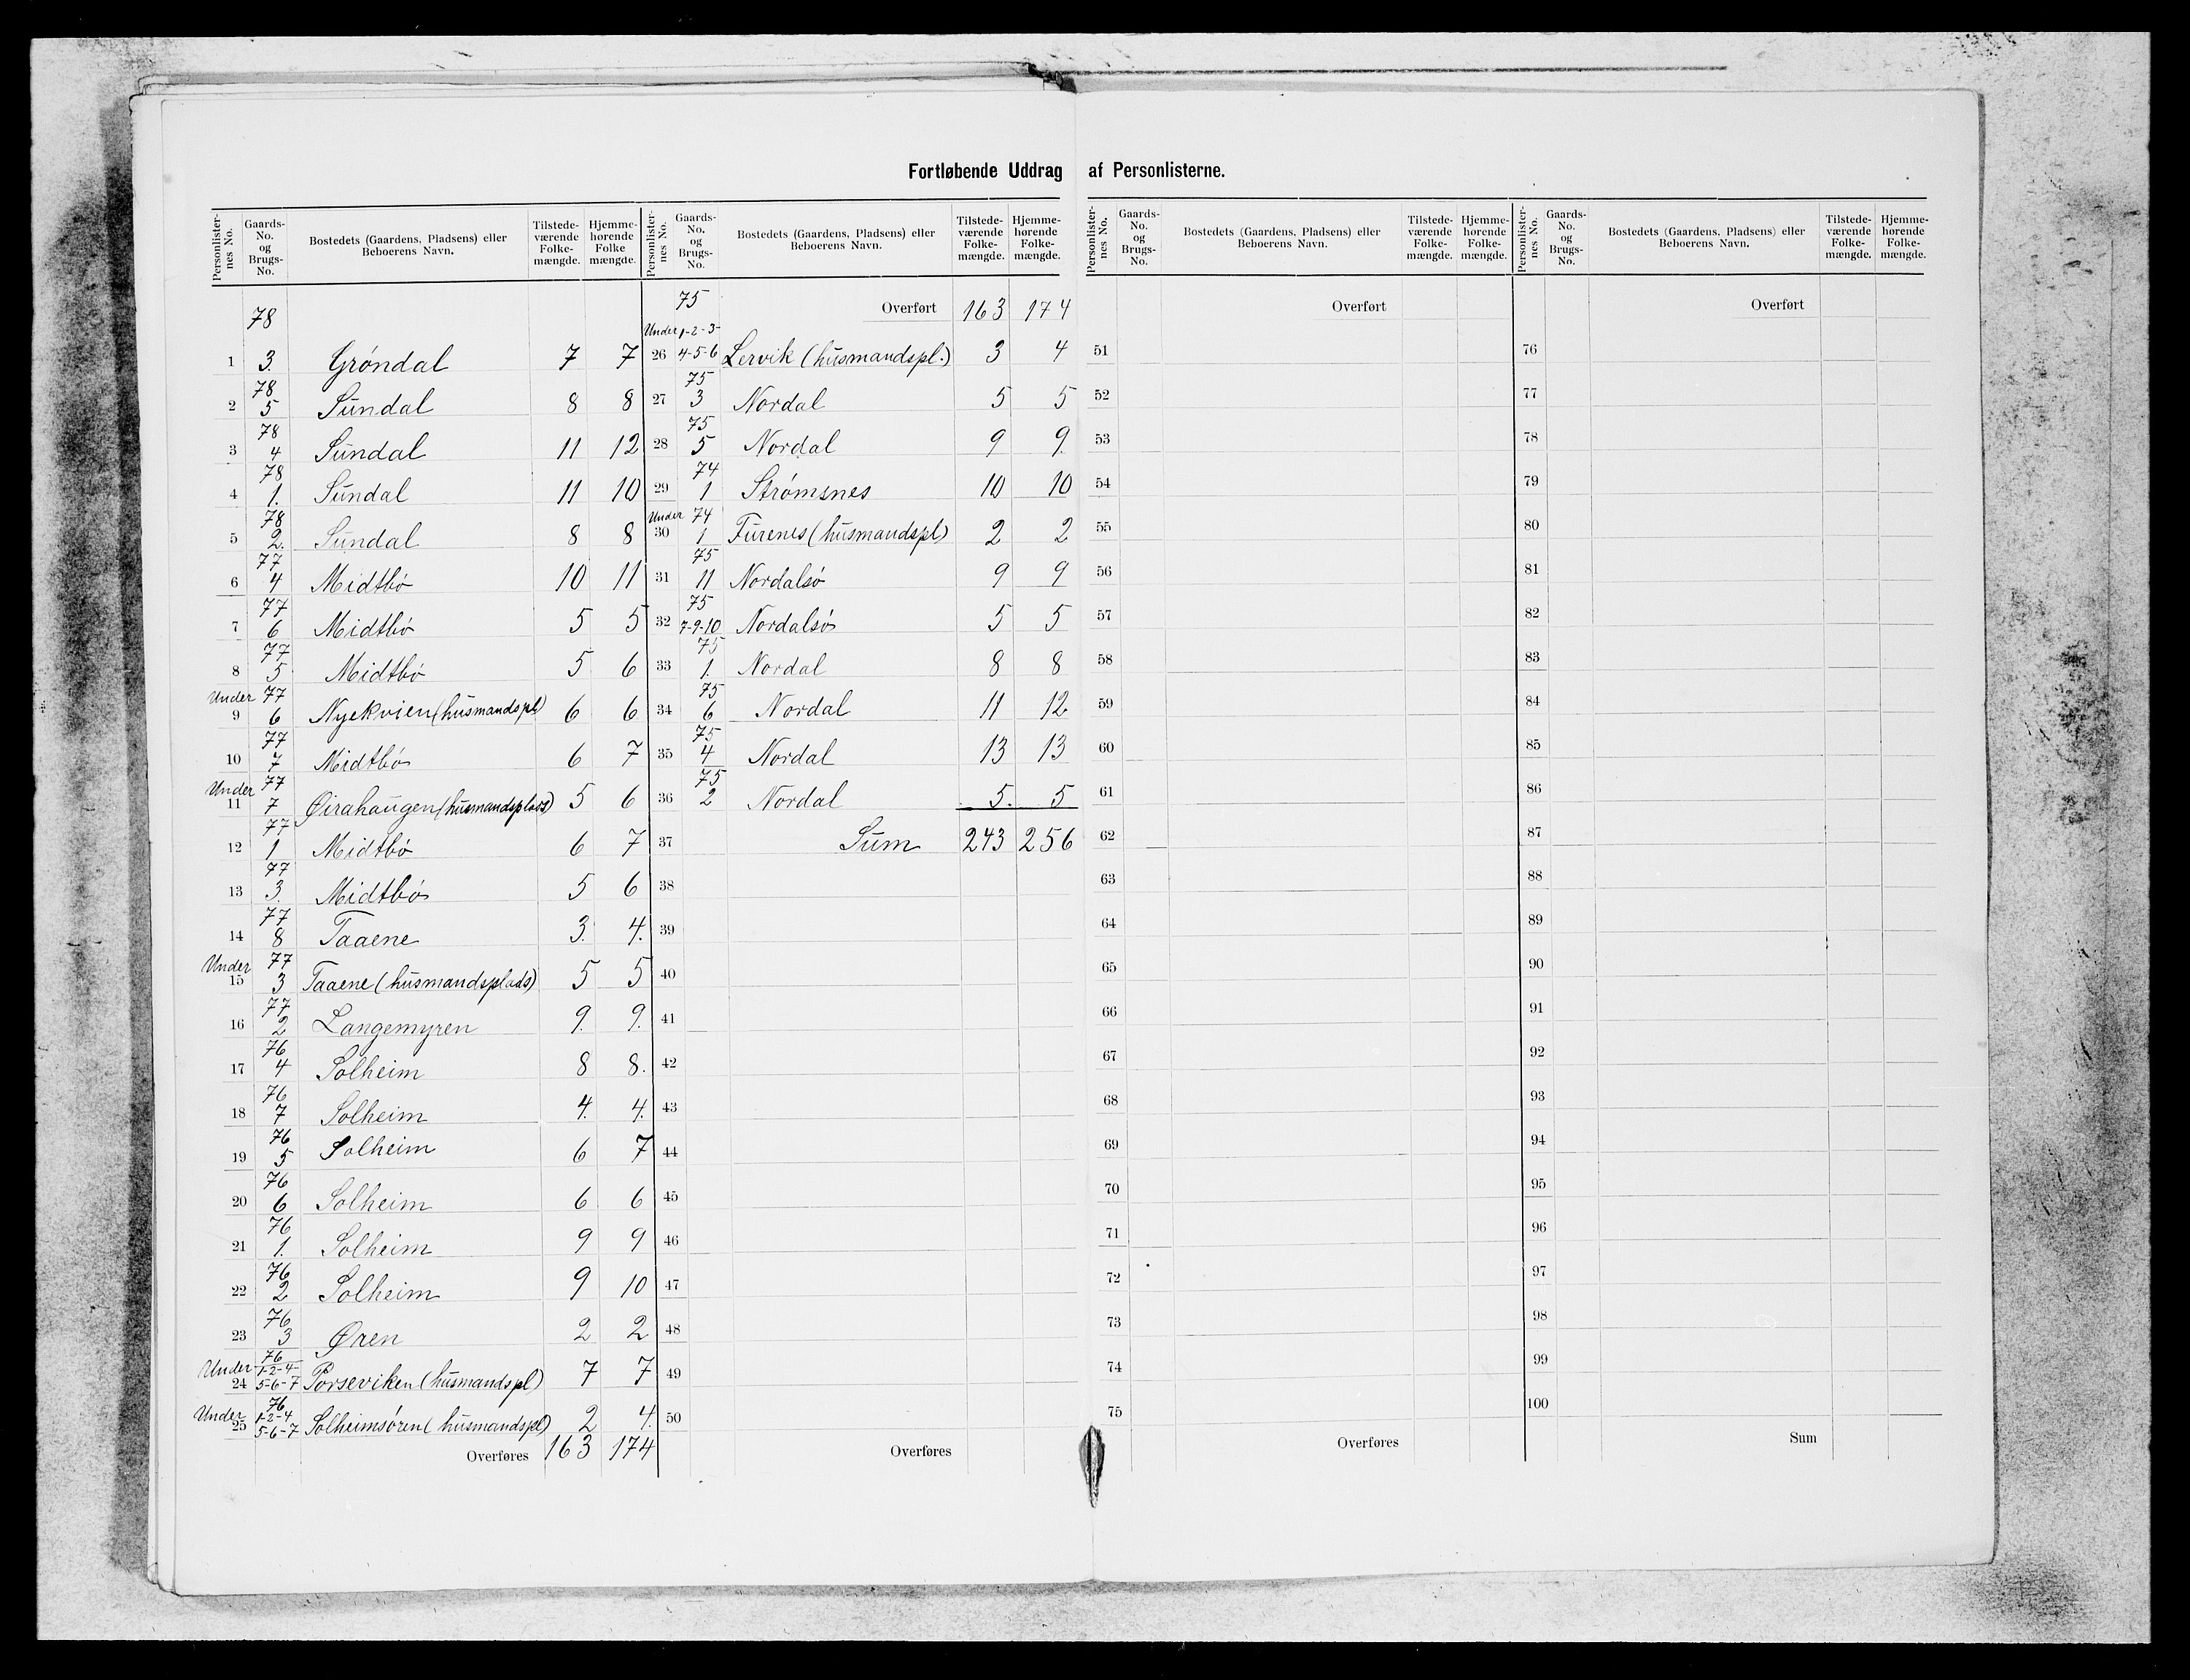 Fortløbende Uddrag af Personlisterne.
Personlister-nes No. | Gaards-No. og Brugs-No. | Bostedets (Gaardens, Pladsens) eller Beboerens Navn. | Tilstede-værende Folke-mængde. | Hjemme-hørende Folke mængde.
78
1 3. Grøndal 7 7
2 78 5 Sundal 8 8
3 78 4 Sundal 11 12
4 78 1. Sundal 11 10
5 78 2. Sundal 8 8
6 77 4 Midtbø 10 11
7 77 6 Midtbø 5 5
8 77 5 Midtbø 5 6
Under 9 77 6 Nyekvien (husmandspl) 6 6
10 77 7 Midtbø 6 7
Under 11 77 7 Øirahaugen (husmandsplads) 5 6
12 77 1 Midtbø 6 7
13 77 3. Midtbø 5 6
14 77 8 Taaene 3. 4.
Under 15 77 3 Taaene (husmandsplads) 5 5
16 77 2 Langemyren 9. 9.
17 76 4 Solheim 8 8.
18 76 7 Solheim 4. 4.
19 76 5 Solheim 6 7
20 76 6 Solheim 6 6
21 76 1. Solheim 9 9
22 76 2 Solheim 9 10
23 76 3 Øren 2 2
Under 24 76 1-2-4-5-6-7 Porseviken (husmandspl) 7 7
Under 25 76 1-2-4 5-6-7 Solheimsøren (husmandspl) 2 4.
Overføres 163 174
Personlister-nes No. | Gaards-No. og Brugs-No. | Bostedets (Gaardens, Pladsens) eller Beboerens Navn. | Tilstede-værende Folke-mængde. | Hjemme-hørende Folke-mængde.
75 Overført 163 174
Under 26 1-2-3-4-5-6 Lervik (husmandspl.) 3 4
27 75 3 Nordal 5 5
28 75 5 Nordal 9 9.
29 74 1 Strømsnes 10 10
Under 30 74 1 Furenes (husmandspl) 2 2
31 75 11 Nordalsø 9 9
32 75 7-9-10 Nordalsø 5 5
33 75 1. Nordal 8 8
34 75 6 Nordal 11 12
35 75 4 Nordal 13 13
36 75 2 Nordal 5. 5
37 Sum 243 256
38
39
40
41
42
43
44
45
46
47
48
49
50
Overføres
Personlister-nes No. | Gaards-No. og Brugs-No. | Bostedets (Gaardens, Pladsens) eller Beboerens Navn. | Tilstede-værende Folke-mængde. | Hjemme-hørende Folke-mængde.
Overført
51
52
53
54
55
56
57
58
59
60
61
62
63
64
65
66
67
68
69
70
71
72
73
74
75
Overføres
Personlister-nes No. | Gaards-No. og Brugs-No. | Bostedets (Gaardens, Pladsens) eller Beboerens Navn. | Tilstede-værende Folke-mængde. | Hjemme-hørende Folke-mængde.
Overført
76
77
78
79
80
81
82
83
84
85
86
87
88
89
90
91
92
93
94
95
96
97
98
99
100
Sum